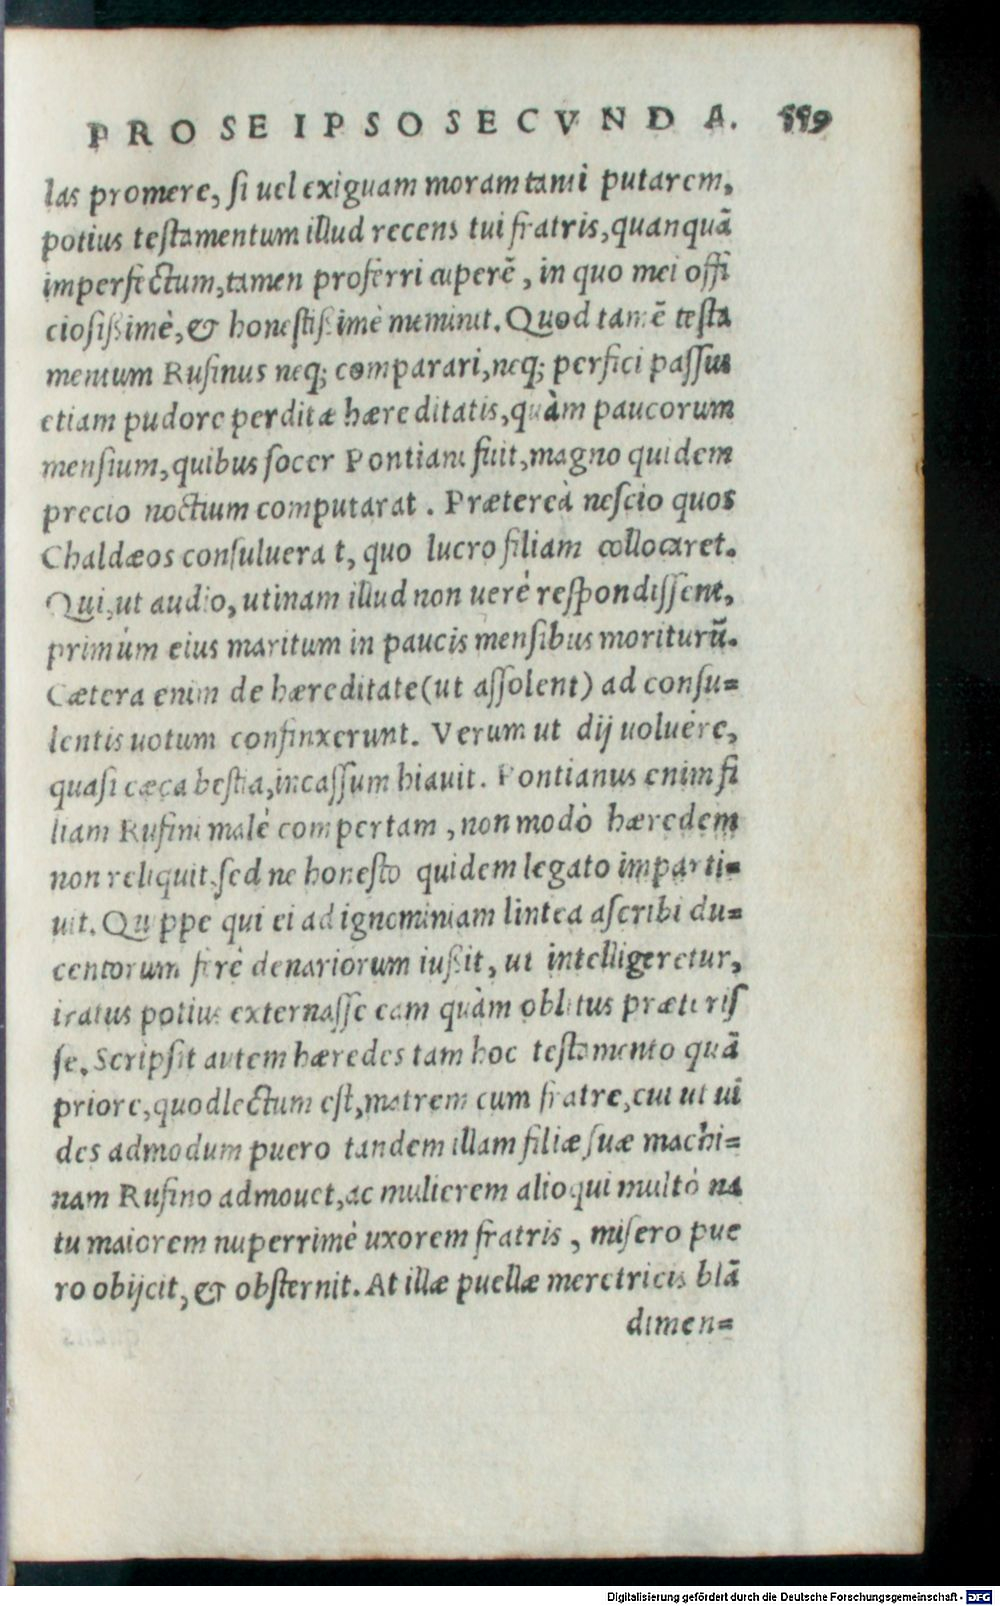 PRO SE IPSO SECVNDA. 559
las promere, si uel exiguam moram tanti putarem,
potius testamentum illud recens tui fratris, quanquā
imperfectum, tamen proferri cuperē, in quo mei offi
ciosissimè, & honestissimè meminit. Quod tamē testa
mentum Rufinus neq; comparari, neq; perfici passus
etiam pudore perditæ hæreditatis, quàm paucorum
mensium, quibus socer Pontiani fuit, magno quidem
precio noctium computarat. Prætereà nescio quos
Chaldæos consuluerat, quo lucro filiam collocaret.
Qui, ut audio, utinam illud non uerè respondissent,
primúm eius maritum in paucis mensibus moriturū.
Cætera enim de hæreditate (ut assolent) ad consu=
lentis uotum confinxerunt. Verum ut dij uoluère,
quasi cæca bestia, incassum hiauit. Pontianus enim fi
liam Rufini malè compertam, non modò hæredem
non reliquit, sed ne honesto quidem legato imparti=
uit. Quippe qui ei ad ignominiam lintea ascribi du=
centorum ferè denariorum iussit, ut intelligeretur,
iratus potius externasse eam quàm oblitus præteris
se. Scripsit autem hæredes tam hoc testamento quā
priore, quod lectum est, matrem cum fratre, cui ut ui
des admodum puero tandem illam filiæ suæ machi=
nam Rufino admouet, ac mulierem alioqui multò na
tu maiorem nuperrimè uxorem fratris, misero pue
ro obijcit, & obsternit. At illæ puellæ meretricis blā
dimen=
Digitalisierung gefördert durch die Deutsche Forschungsgemeinschaft - DFG